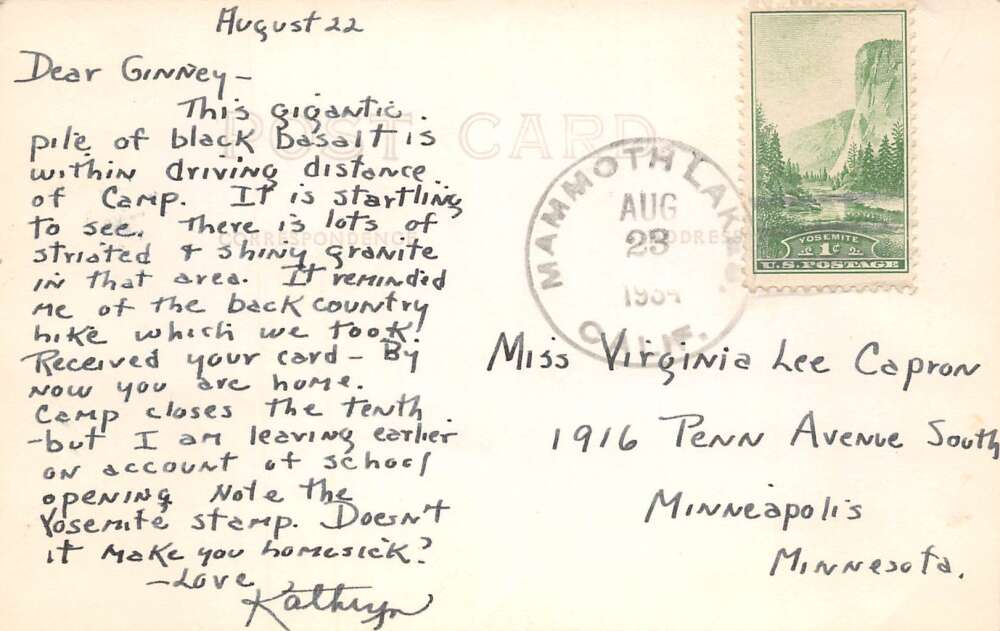 August 22
Dear Ginney-
This gigantic
pile of black basalt is
within driving distance
of Camp. It is startling
to see. There is lots of
striated & shiny granite
in that area. It reminded
me of the back country
hike which we took!
Received your card - By
now you are home.
Camp closes the tenth
-but I am leaving earlier
on account of school
opening Note the
Yosemite stamp. Doesn't
it make you homesick?
-Love
Kathryn
POST CARD
CORRESPONDENCE
ADDRESS
MAMMOTH LAKES
AUG
23
1934
CALIF.
YOSEMITE
1¢
U.S. POSTAGE
Miss Virginia Lee Capron
1916 Penn Avenue South
Minneapolis
Minnesota.